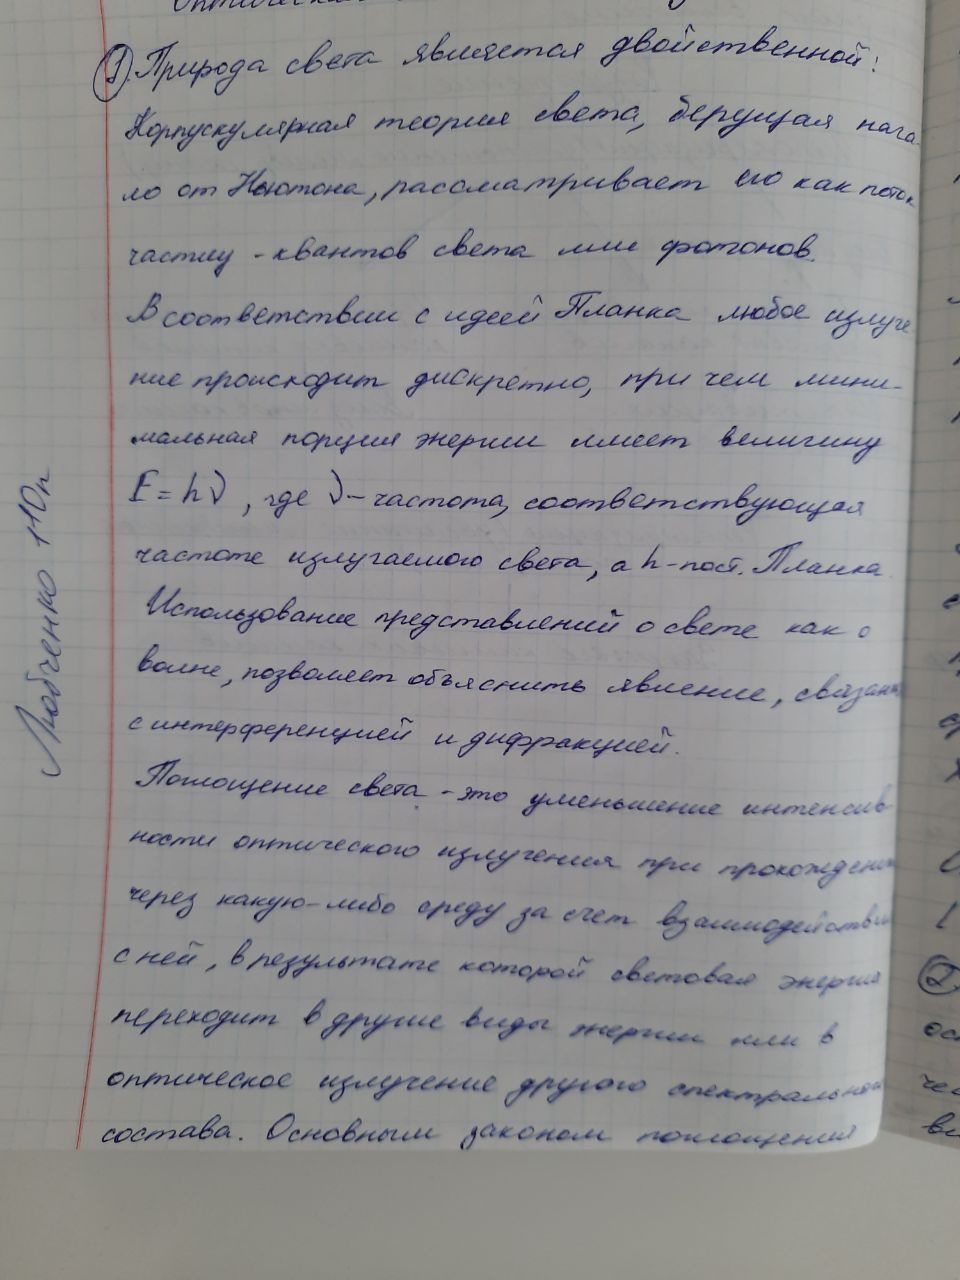 оптическая
1. Природа света является двойственной:
Корпускулярная теория света, берущая нача-
ло от Ньютона, рассматривает его как поток
частиц - квантов света или фотонов.
В соответствии с идеей Планка любое излуче
ние происходит дискретно, при чем мини-
мальная порция энергии имеет величину
E = hν, где ν - частота, соответствующая
частоте излучаемого света, а h - пост. Планка.
Использование представлений о свете как о
волне, позволяет объяснить явление, связан
с интерференцией и дифракцией.
Поглощение света - это уменьшение интенсив
ности оптического излучения при прохождении
через какую-либо среду за счет взаимодействия
с ней, в результате которой световая энергия
переходит в другие виды энергии или в
оптическое излучение другого спектрального
состава. Основным законом поглощения
Любченко 110п
2.